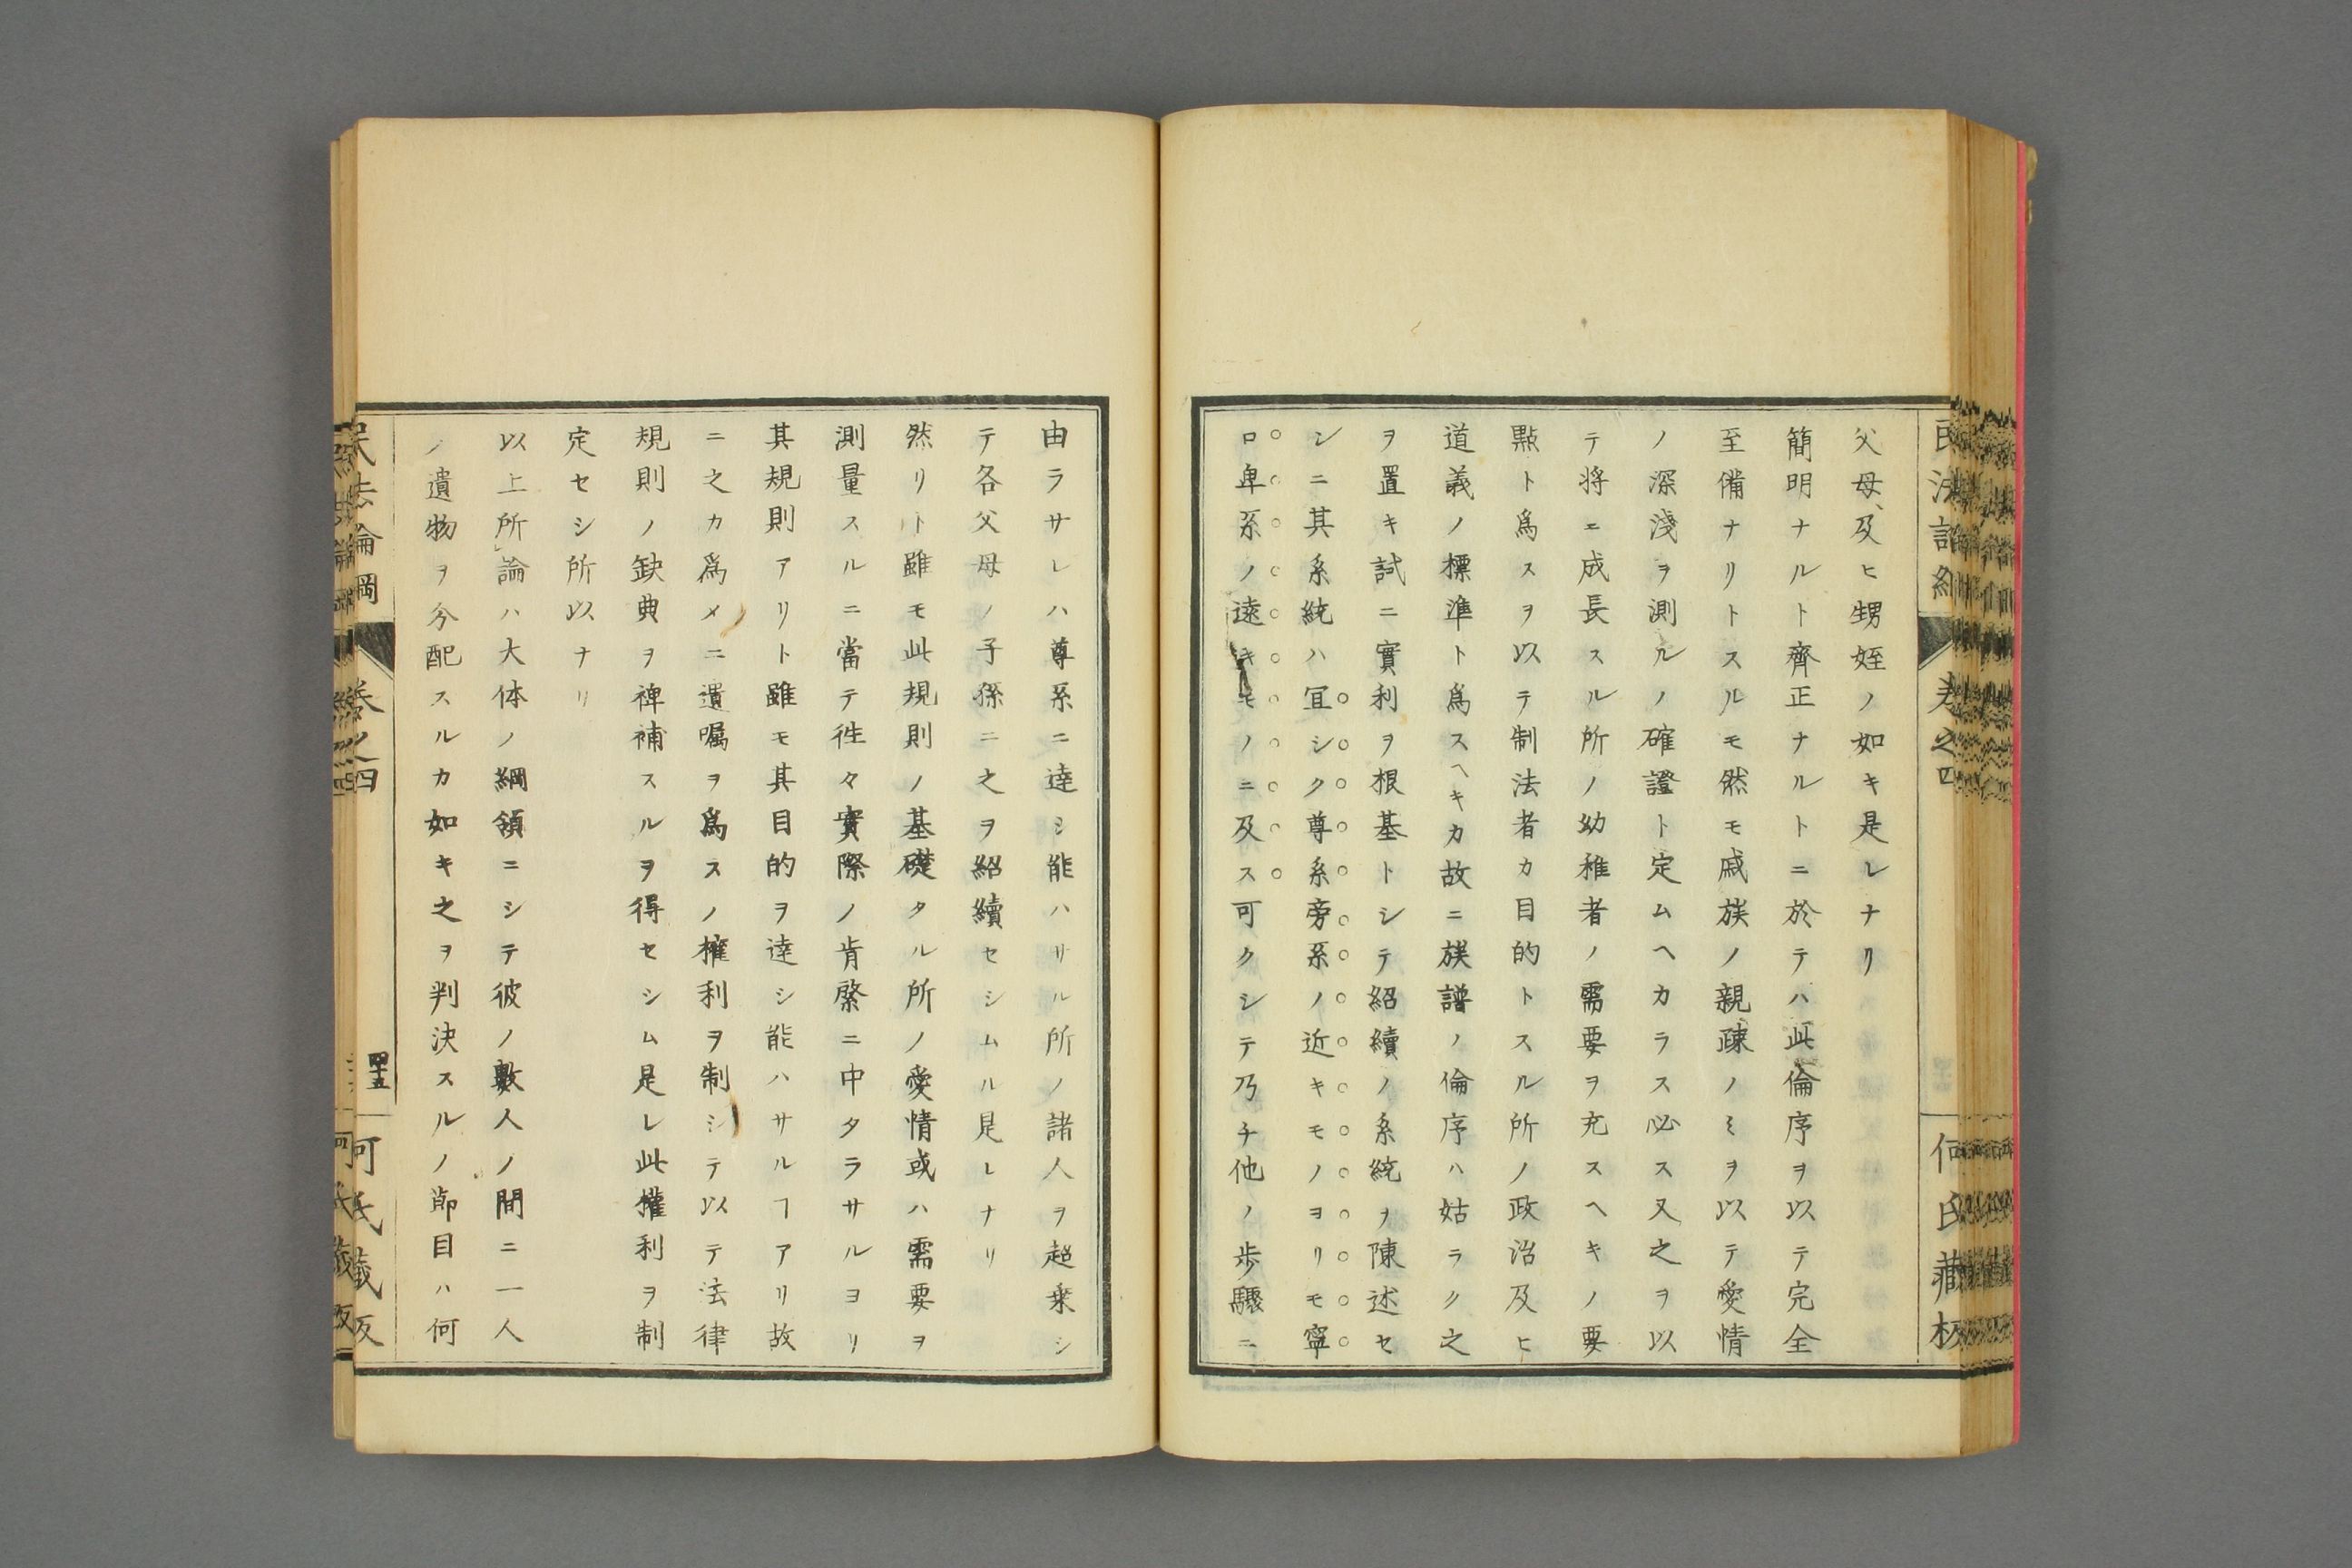 父母、及ヒ甥姪ノ如キ是レナリ
簡明ナルト齊正ナルトニ於テハ此倫序ヲ以テ完全
至備ナリトスルモ然モ戚族ノ親疎ノミヲ以テ愛情
ノ深淺ヲ測ルノ確證ト定ムヘカラス必ス又之ヲ以
テ将ニ成長スル所ノ幼稚者ノ需要ヲ充スヘキノ要
點ト爲スヲ以テ制法者カ目的トスル所ノ政治及ヒ
道義ノ標準ト爲スヘキカ故ニ族譜ノ倫序ハ姑ラク之
ヲ置キ試ニ實利ヲ根基トシテ紹續ノ系統ヲ陳述セ
ンニ其系統ハ宜シク尊系旁系ノ近キモノヨリモ寧
ロ卑系ノ遠キモノニ及ス可クシテ乃チ他ノ歩驟ニ
由ラサレハ尊系ニ達シ能ハサル所ノ諸人ヲ超乗シ
テ各父母ノ子孫ニ之ヲ紹續セシムル是レナリ
然リト雖モ此規則ノ基礎タル所ノ愛情或ハ需要ヲ
測量スルニ當テ徃々實際ノ肯綮ニ中タラサルヨリ
其規則アリト雖モ其目的ヲ達シ能ハサルヿアリ故
ニ之カ爲メニ遺嘱ヲ爲スノ權利ヲ制シテ以テ法律
規則ノ缺典ヲ裨補スルヲ得セシム是レ此權利ヲ制
定セシ所以ナリ
以上所論ハ大体ノ綱領ニシテ彼ノ數人ノ間ニ一人
ノ遺物ヲ分配スルカ如キ之ヲ判決スルノ節目ハ何
民法論綱 巻之四 四十五 何氏藏板